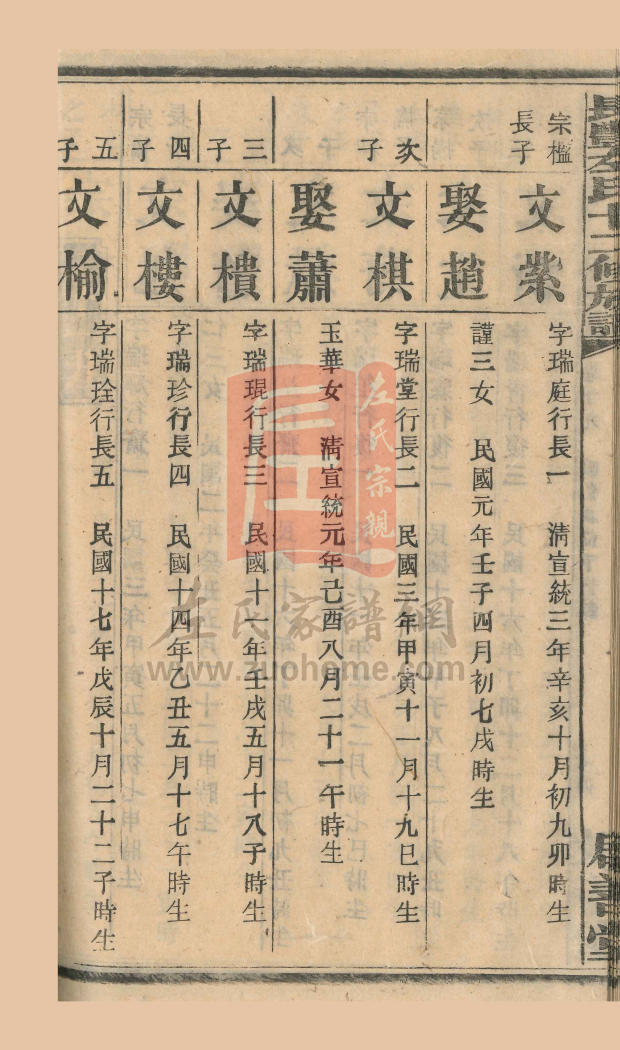 宗楹長子
文榮
字瑞庭行長一　清宣統三年辛亥十月初九卯時生
娶趙
謹三女　民國元年壬子四月初七戌時生
次子
文棋
字瑞堂行長二　民國三年甲寅十一月十九巳時生
娶蕭
玉華女　清宣統元年己酉八月二十一午時生
三子
文樻
字瑞琨行長三　民國十一年壬戌五月十八子時生
四子
文樓
字瑞珍行長四　民國十四年乙丑五月十七午時生
五子
文榆
字瑞珄行長五　民國十七年戊辰十月二十二子時生
左氏十二修族譜
善堂
左氏宗親
左氏家譜網
www.zuohome.com